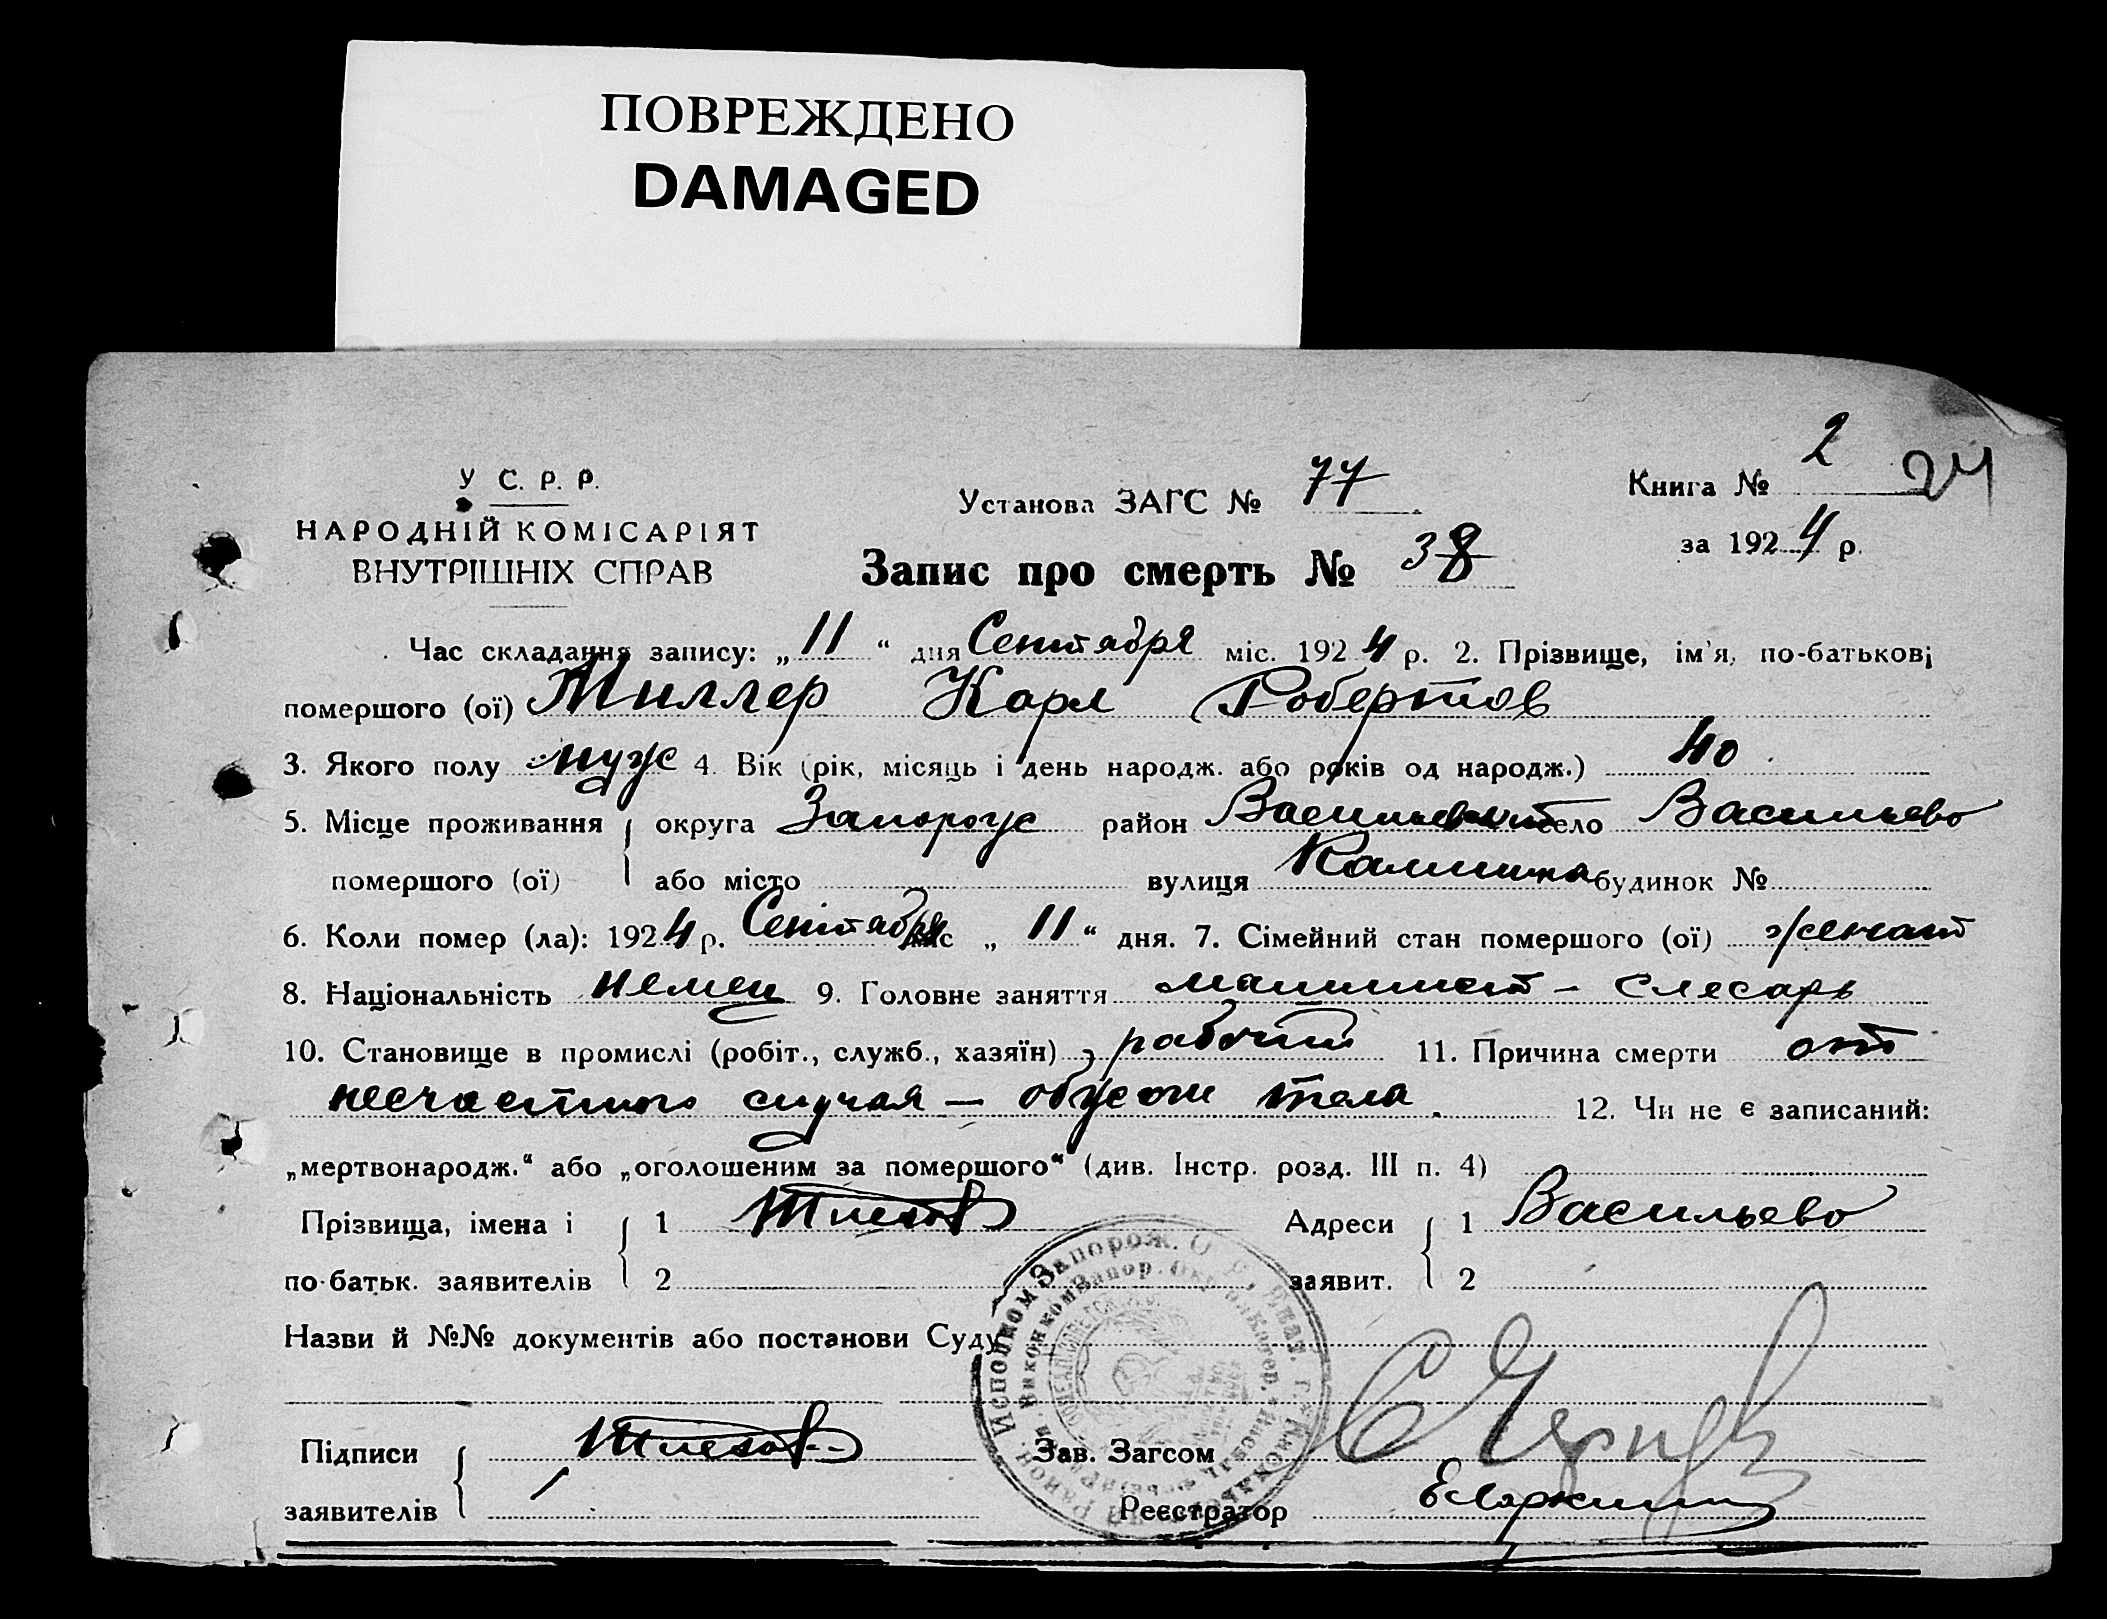 ПОВРЕЖДЕНО
DAMAGED
У С. Р. Р.
НАРОДНІЙ КОМІСАРІЯТ
ВНУТРІШНІХ СПРАВ
Установа ЗАГС № 77
Книга № 2 24
за 1924 р.
Запис про смерть № 38
Час складання запису: „11“ дня Сентября міс. 1924 р. 2. Прізвище, ім'я, по-батькові
помершого (ої) Миллер Карл Робертов
3. Якого полу муж 4. Вік (рік, місяць і день народж. або років од народж.) 40
5. Місце проживання округа Запорож район село Васильево
помершого (ої) або місто вулиця Калинина будинок №
6. Коли помер (ла): 1924 р. Сентября міс „11“ дня. 7. Сімейний стан помершого (ої) женат
8. Національність немец 9. Головне заняття машинист - слесарь
10. Становище в промислі (робіт., служб., хазяїн) рабочий 11. Причина смерти от
несчастного случая — тела. 12. Чи не є записаний:
„мертвонародж.“ або „оголошеним за помершого“ (див. Інстр. розд. III п. 4)
Прізвища, імена і 1 Адреси 1 Васильево
по-батьк. заявителів 2 заявит. 2
Назви й №№ документів або постанови Суду
Підписи Зав. Загсом
заявителів Реєстратор